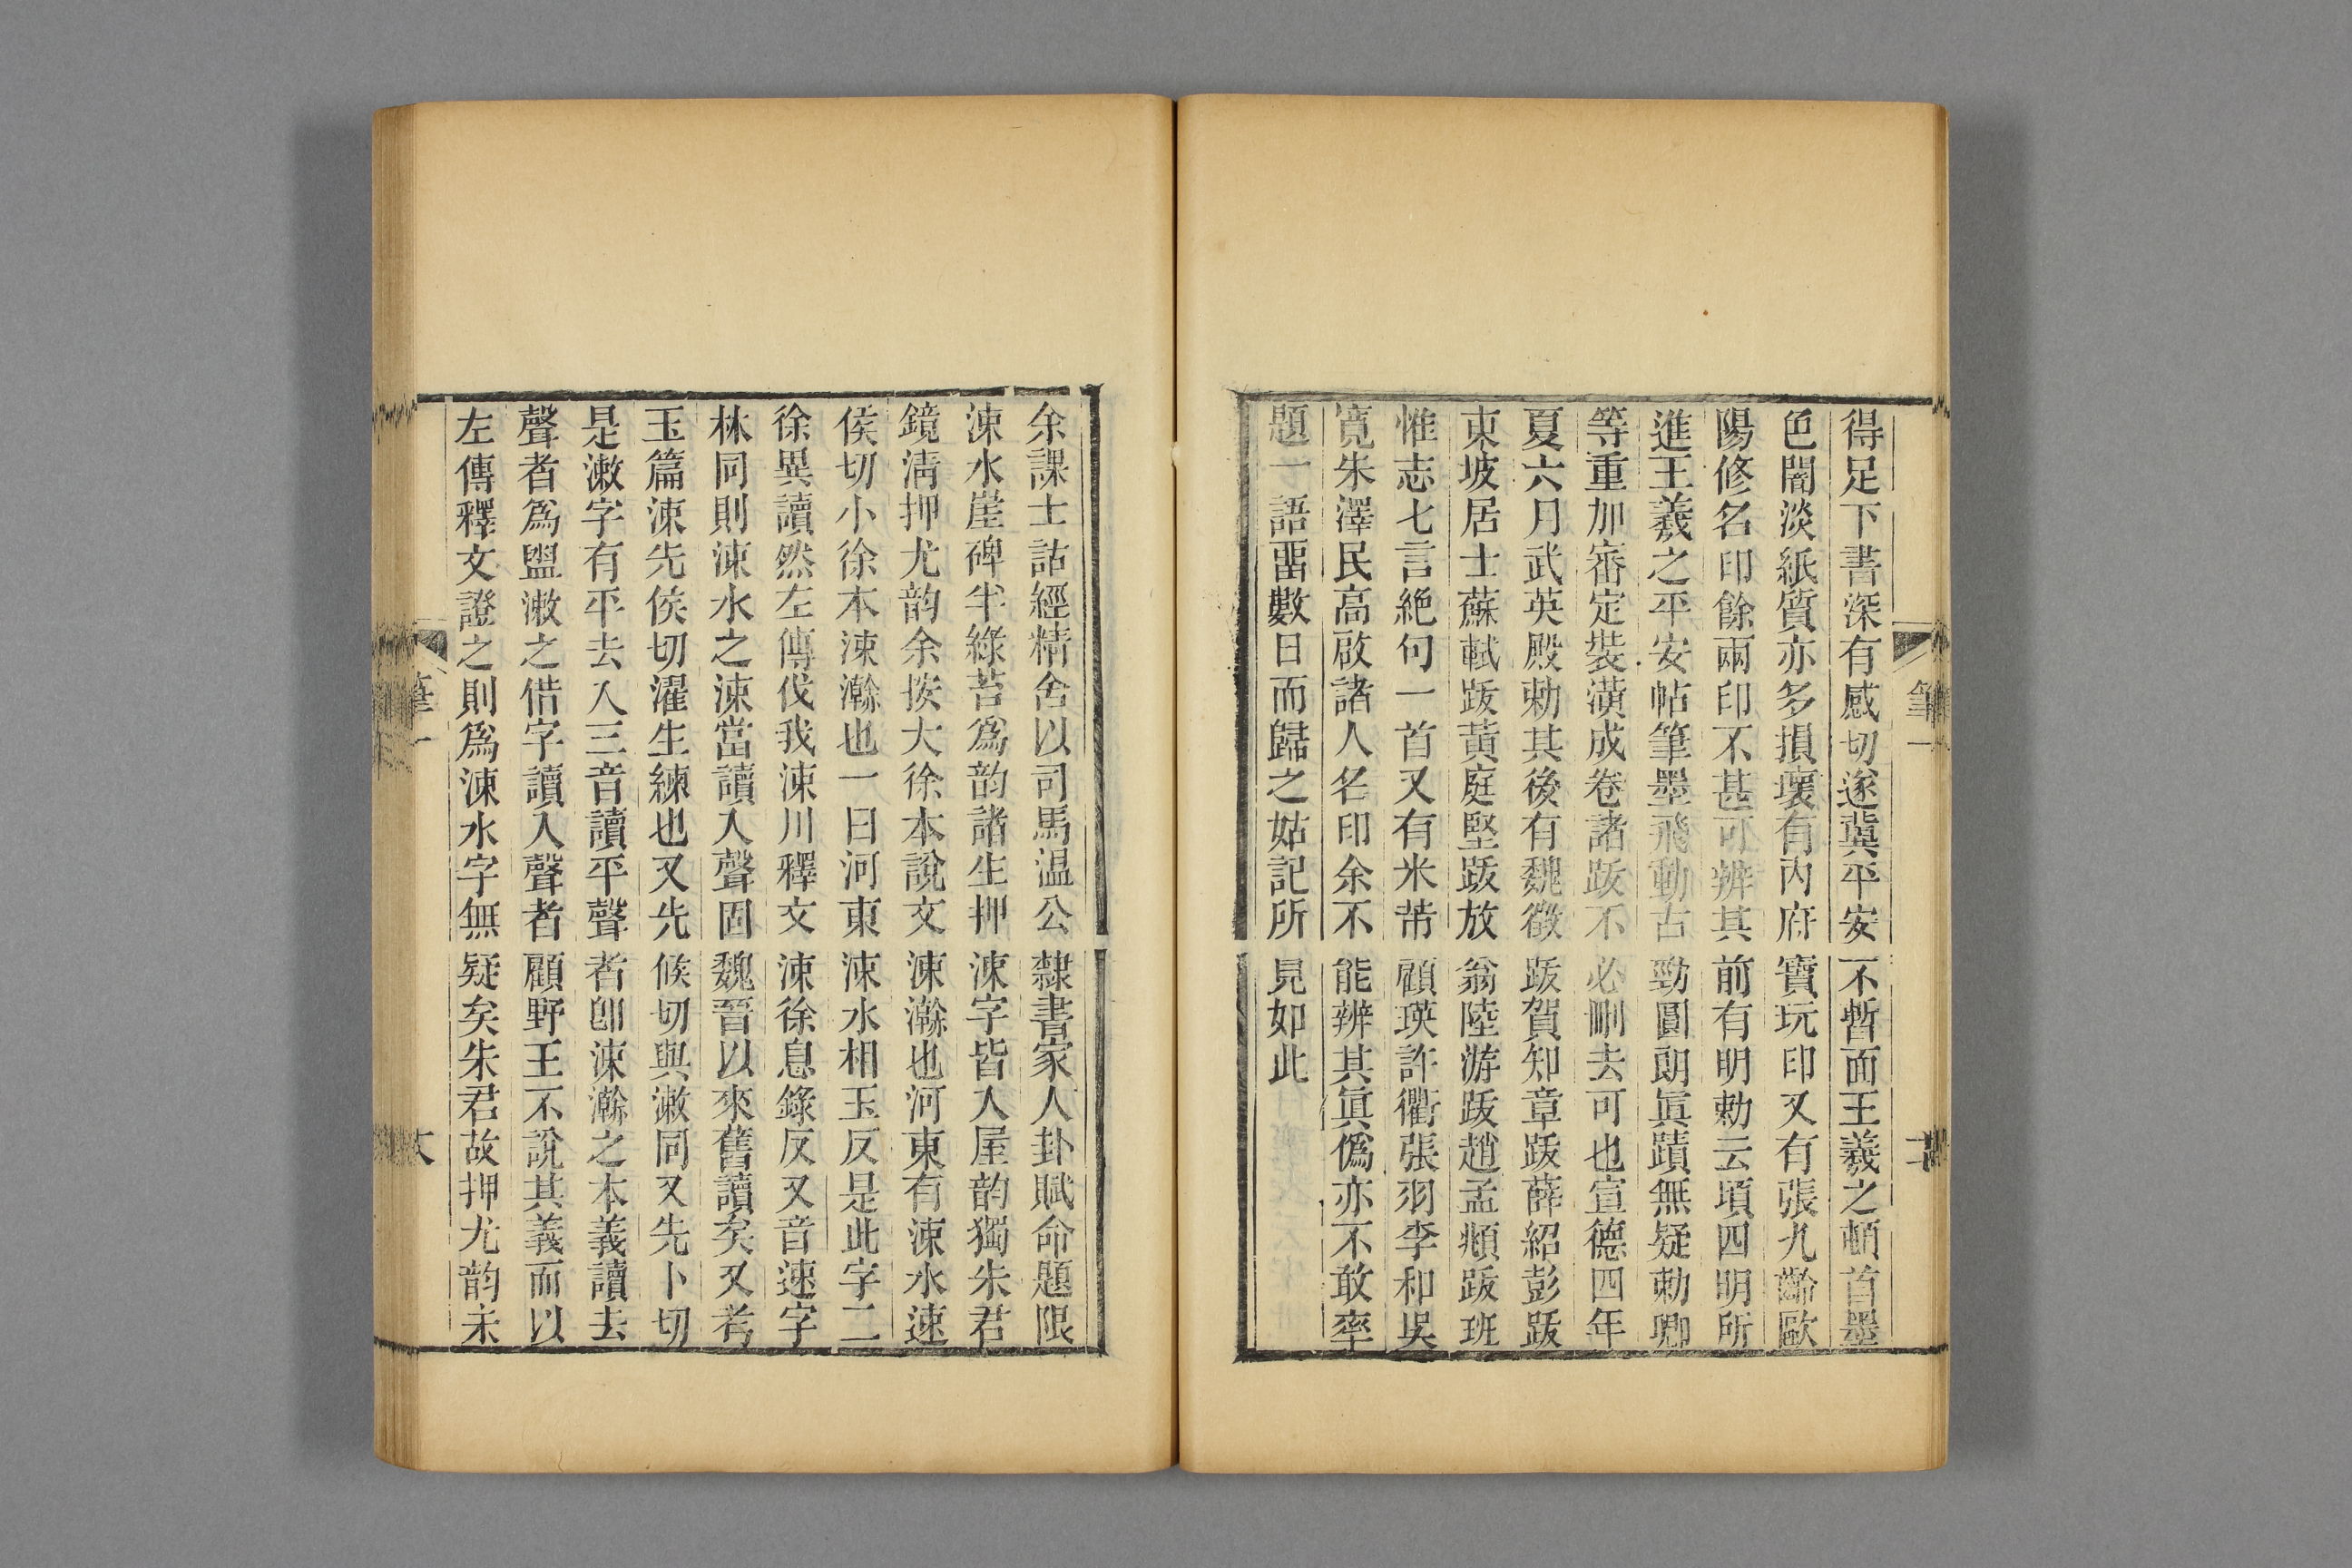 得足下書深有感切遂冀平安不暫面王羲之頓首墨
色闇淡紙質亦多損壞有內府寶玩印又有張九齡歐
陽修名印餘兩印不甚可辨其前有明勅云頃四明所
進王羲之平安帖筆墨飛動古勁圓朗眞蹟無疑勅卿
等重加審定裝潢成卷諸跋不必刪去可也宣德四年
夏六月武英殿勅其後有魏徵跋賀知章跋薛紹彭跋
東坡居士蘇軾跋黃庭堅跋放翁陸游跋趙孟頫跋班
惟志七言絕句一首又有米芾顧瑛許衢張羽李和吳
寬朱澤民高啟諸人名印余不能辨其眞僞亦不敢率
題一語畱數日而歸之姑記所見如此
筆一
余課士詁經精舍以司馬温公隸書家人卦賦命題限
涑水崖碑半綠苔爲韵諸生押涑字皆入屋韵獨朱君
鏡淸押尤韵余按大徐本說文涑瀚也河東有涑水速
侯切小徐本涑瀚也一曰河東涑水相玉反是此字二
徐異讀然左傳伐我涑川釋文涑徐息錄反又音速字
林同則涑水之涑當讀入聲固魏晉以來舊讀矣又考
玉篇涑先侯切濯生練也又先候切與漱同又先卜切
是漱字有平去入三音讀平聲者卽涑瀚之本義讀去
聲者爲盥漱之借字讀入聲者顧野王不說其義而以
左傳釋文證之則爲涑水字無疑矣朱君故押尤韵未
筆一